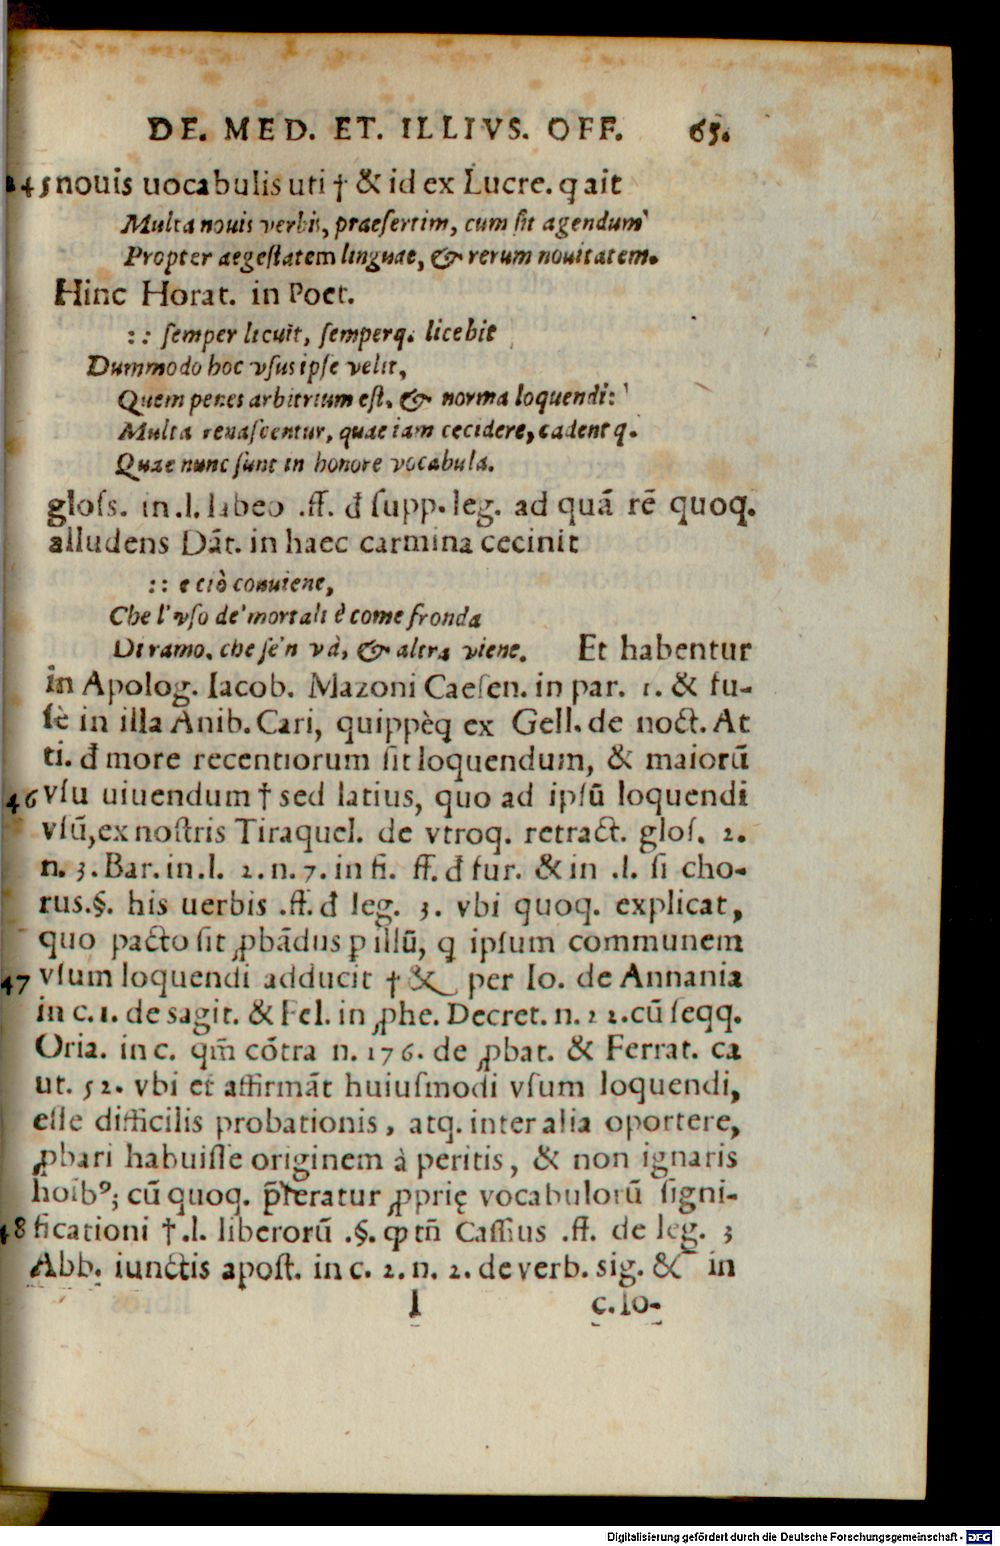 DE. MED. ET. ILLIVS. OFF. 65.
45 nouis uocabulis uti † & id ex Lucre. q ait
Multa nouis verbis, praesertim, cum sit agendum
Propter aegestatem linguae, & rerum nouitatem.
Hinc Horat. in Poet.
:: semper licuit, semperq. licebit
Dummodo hoc vsus ipse velit,
Quem penes arbitrium est, & norma loquendi:
Multa renascentur, quae iam cecidere, cadentq.
Quae nunc sunt in honore vocabula.
gloss. in .l. labeo .ff. đ supp. leg. ad quā rē quoq.
alludens Dāt. in haec carmina cecinit
:: e ciò conuiene,
Che l'vso de' mortali è come fronda
Di ramo, che se'n và, & altra viene. Et habentur
in Apolog. Iacob. Mazoni Caesen. in par. 1. & fu-
sè in illa Anib. Cari, quippèq ex Gell. de noct. At
ti. đ more recentiorum sit loquendum, & maiorū
46 vsu uiuendum † sed latius, quo ad ipsū loquendi
vsū, ex nostris Tiraquel. de vtroq. retract. glos. 2.
n. 3. Bar. in .l. 2. n. 7. in fi. ff. đ fur. & in .l. si cho-
rus.§. his uerbis .ff. đ leg. 3. vbi quoq. explicat,
quo pacto sit ꝓbādus p illū, q ipsum communem
47 vsum loquendi adducit † & per Io. de Annania
in c. 1. de sagit. & Fel. in ꝓhe. Decret. n. 11. cū seqq.
Oria. in c. qm̄ cótra n. 176. de ꝓbat. & Ferrat. ca
ut. 52. vbi et affirmāt huiusmodi vsum loquendi,
esse difficilis probationis, atq. inter alia oportere,
ꝓbari habuisse originem à peritis, & non ignaris
hoib⁹; cū quoq. p̄feratur ꝓprię vocabulorū signi-
48 ficationi † .l. liberorū .§. ꝙ tñ Cassius .ff. de leg. 3
Abb. iunctis apost. in c. 2. n. 2. de verb. sig. & in
I c. Io-
Digitalisierung gefördert durch die Deutsche Forschungsgemeinschaft - DFG